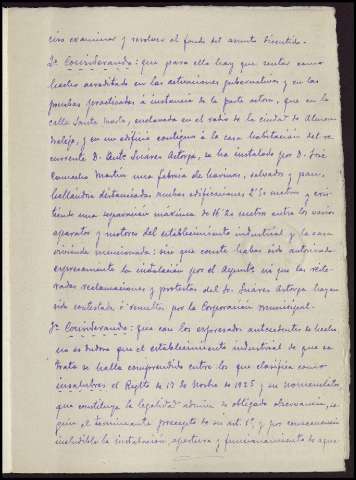 ciso examinar y resolver el fondo del asunto discutido.
2º Considerando: que para ello hay que sentar como
hecho acreditado en las actuaciones gubernativas y en las
pruebas practicadas á instancia de la parte actora, que en la
calle Santa Marta, enclavada en el radio de la ciudad de Almen
dralejo, y en un edificio contiguo á la casa habitación del re
currente D. Suárez Astorga, se ha instalado por D. José
González Martín una fábrica de harinas, salvados y pan,
hallándose distanciadas ambas edificaciones 2'50 metros y exis
tiendo una separación máxima de 16'20 metros entre los varios
aparatos y motores del establecimiento industrial y la casa
vivienda mencionada: sin que conste haber sido autorizada
expresamente la instalación por el Ayunto ni que las reite
radas reclamaciones y protestas del Sr. Suárez Astorga hayan
sido contestadas ó resueltas por la Corporación municipal.
3º Considerando: que con los expresados antecedentes de hecho
no es dudoso que el establecimiento industrial de que se
trata se halla comprendido entre los que clasifica como
insalubres el Regto de 17 de Novbre de 1925 y su nomenclator
que constituye la legalidad de obligada observancia, se
gún el terminante precepto de su art. 1º, y por consecuencia
ineludible la instalación apertura y funcionamiento de aque